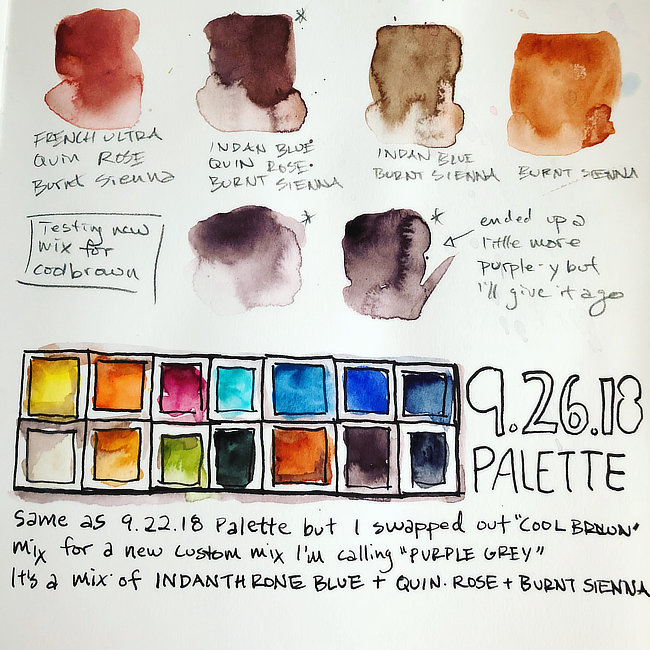 FRENCH ULTRA
QUIN ROSE
Burnt Sienna
INDAN BLUE
QUIN ROSE.
BURNT SIENNA
INDAN BLUE
BURNT SIENNA
BURNT SIENNA
Testing new
mix for
cool brown
ended up a
little more
purple-y but
I'll give it a go
9.26.18
PALETTE
same as 9.22.18 Palette but I swapped out "COOL BROWN"
mix for a new custom mix I'm calling "PURPLE GREY"
It's a mix of INDANTHRONE BLUE + QUIN. ROSE + BURNT SIENNA